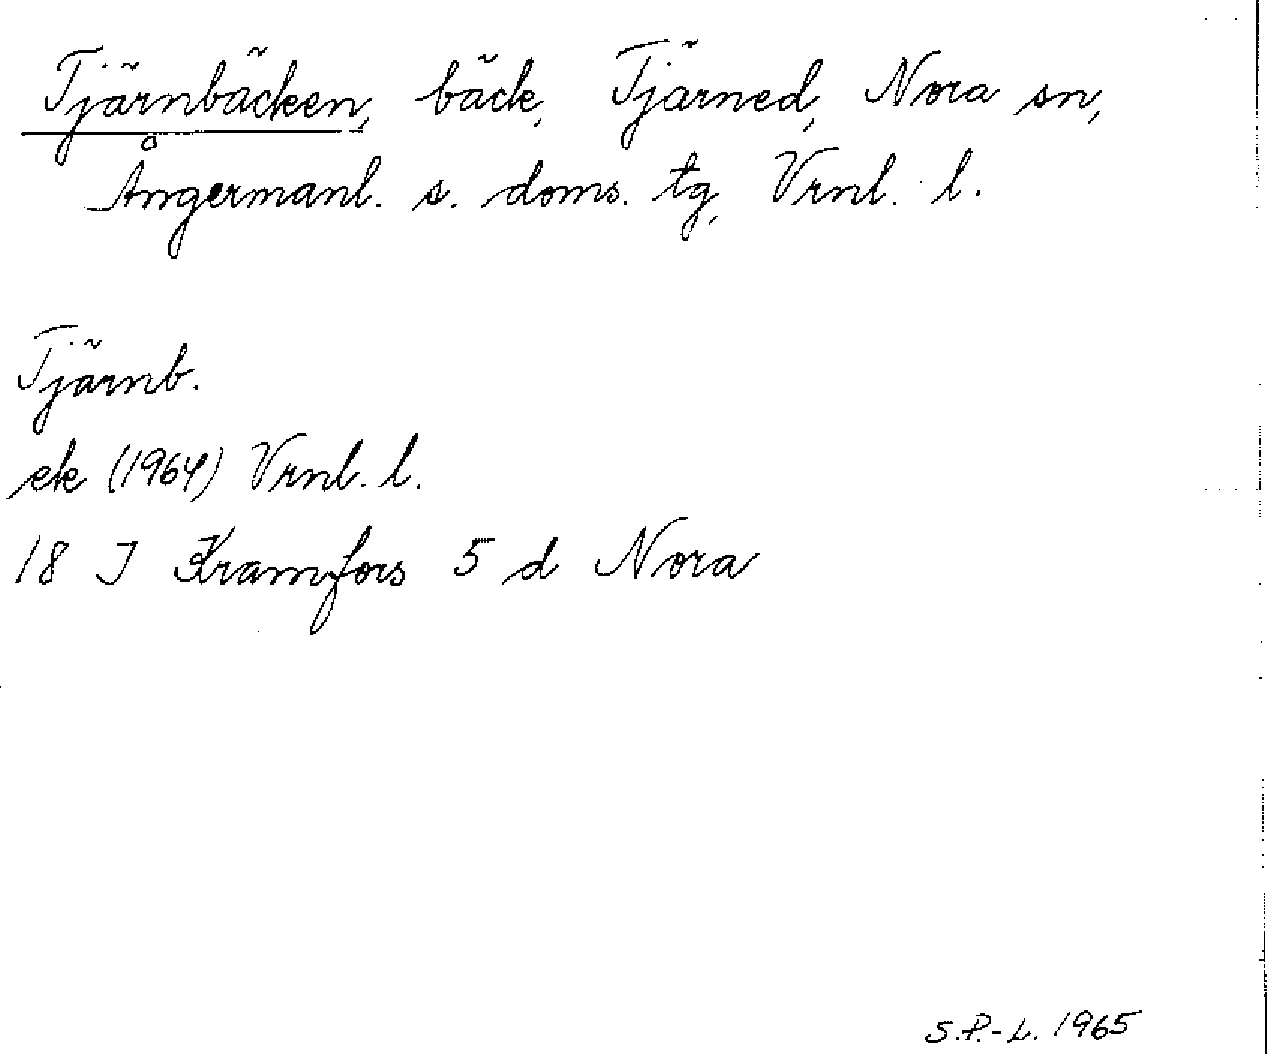 Tjärnbäcken, bäck, Tjärned, Nora sn,
Ångermanl. s. doms. tg, Vrnl. l.
Tjärnb.
ek (1964) Vrnl. l.
18 J Kramfors 5 d Nora
S.P.-L. 1965